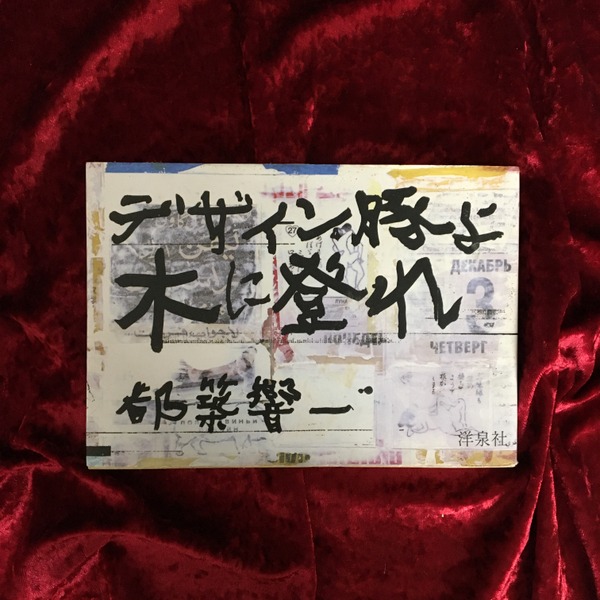 デザイン豚よ
木に登れ
都築響一
洋泉社
ДЕКАБРЬ
3
ЧЕТВЕРГ
27